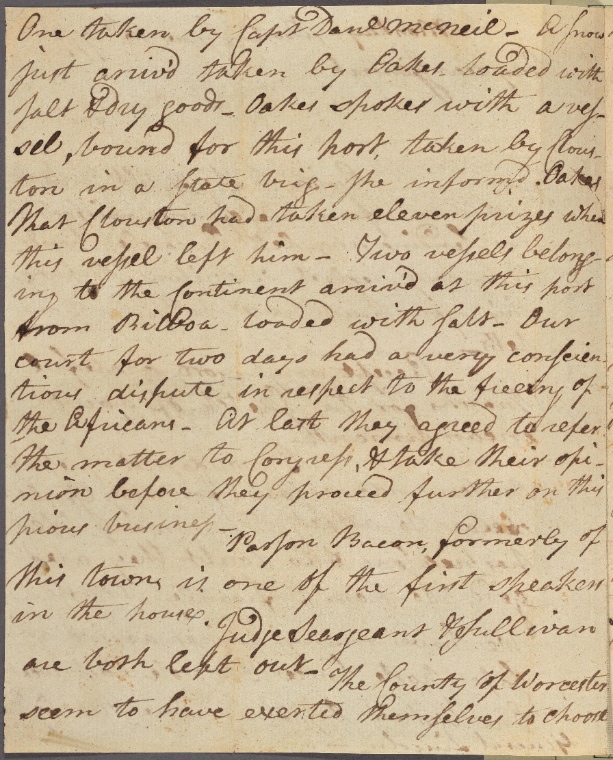 One taken by Capt Danl mcneil - A snow
just arriv'd taken by Oakes loaded with
salt & dry goods - Oakes spokes with a ves-
sel, bound for this port, taken by Clous-
ton in a State brig - she inform'd Oakes
that Clouston had taken eleven prizes when
this vessel left him - Two vessels belong-
ing to the Continent arriv'd at this port
from Bilboa - loaded with salt - Our
court for two days had a very conscien
tious dispute in respect to the freeing of
the Africans - At last they agreed to refer
the matter to Congress, & take their opi-
nion before they proceed further on this
pious business -
Parson Bacon, formerly of
this town, is one of the first speakers
in the house.
Judge Seargeant & Sullivan
are both left out -
The County of Worcester
seem to have exerted themselves to choose